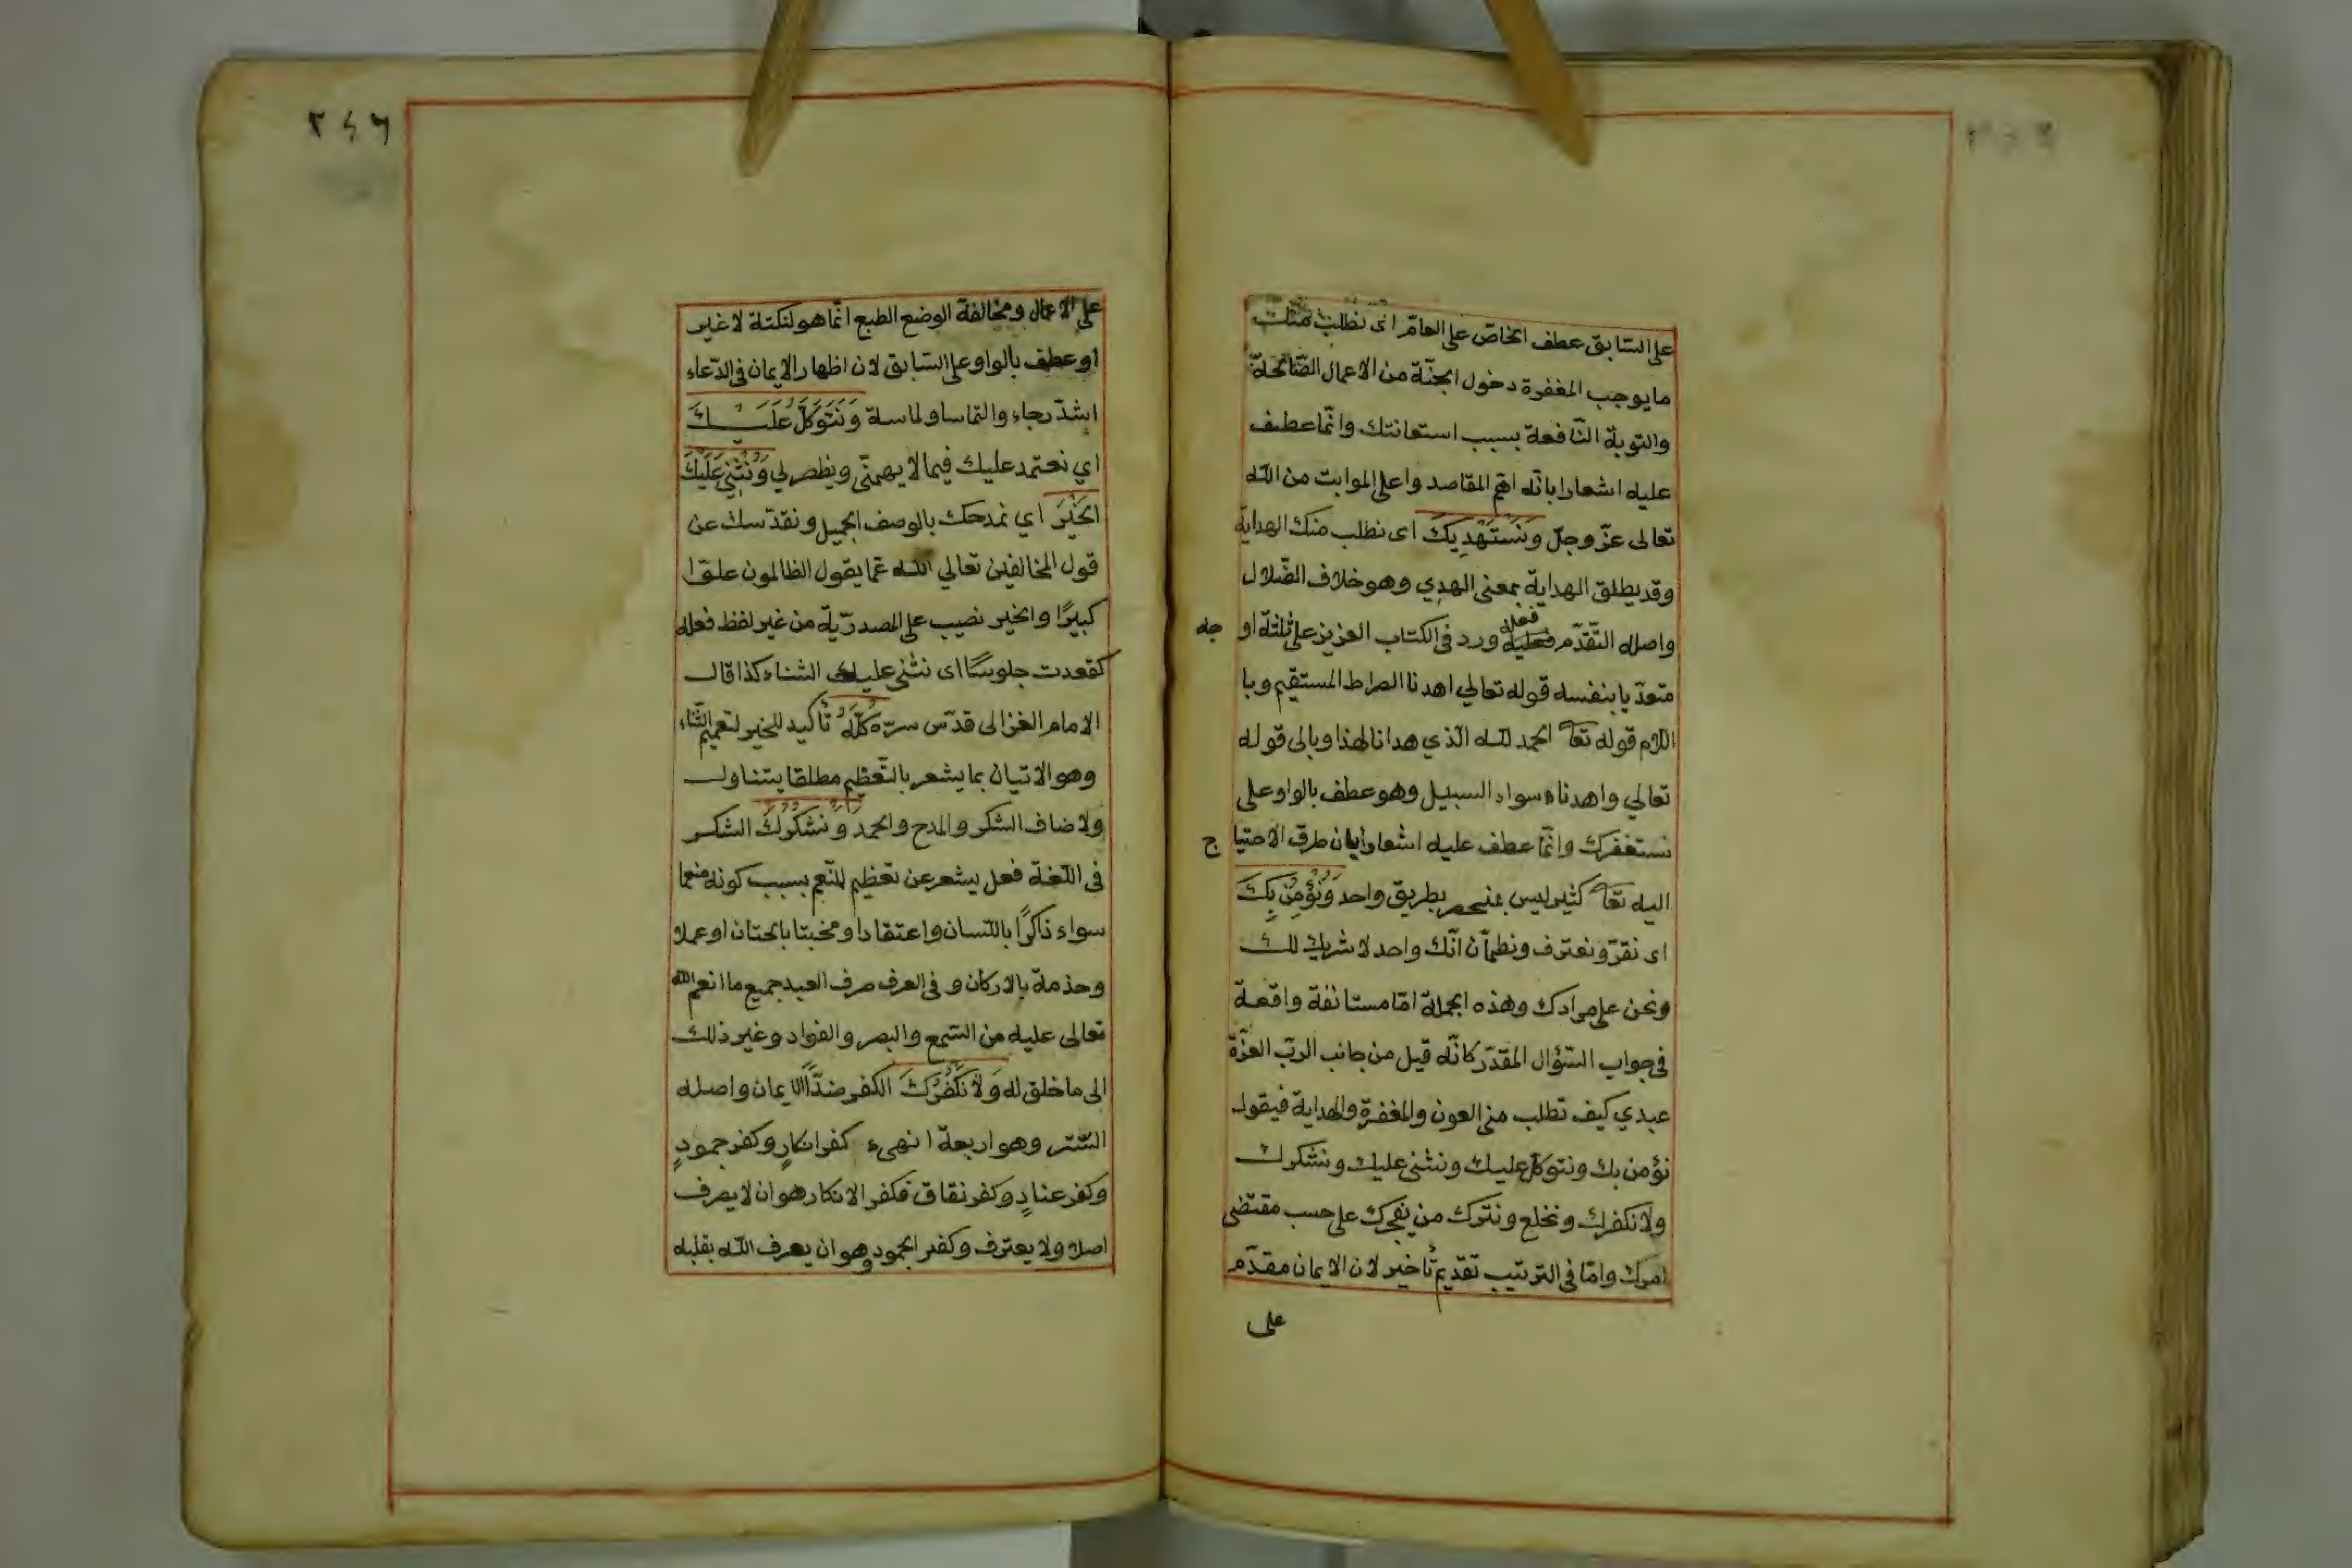 على السّابق عطف الخاصّ على العامّ اى نطلب منك
ما يوجب المغفرة دخول الجنّة من الاعمال الصّالحة
والتوبة النّافعة بسبب استعانتك وانّما عطف
عليه اشعارا بانّه اهمّ المقاصد واعلى المواهب من اللّه
تعالى عزّ وجلّ وَنَسْتَهْدِيكَ اى نطلب منك الهداية
وقد يطلق الهداية بمعنى الهدي وهو خلاف الضّلال
واصله التّقدّم فعليه ورد فى الكتاب العزيز على ثلثة او
فعله
جه
متعدّيا بنفسه قوله تعالي اهدنا الصراط المستقيم وبا
اللام قوله تعا الحمد للّه الّذي هدانا لهذا وبالى قوله
تعالي واهدناه سواء السبيل وهو عطف بالواو على
نستغفرك وانّما عطف عليه اشعارا بان طرق الاحتيا
ج
اليه تعا كثير ليس بمنحصر بطريق واحد وَنُؤْمِنُ بِكَ
اى نقرّ ونعترف ونطمأن انّك واحد لا شريك لك
ونحن على مرادك وهذه الجملة امّا مستانفة واقعة
فى جواب السّؤال المقدّر كانّه قيل من جانب الربّ العزّة
عبدي كيف تطلب منى العون والمغفرة والهداية فيقول
نؤمن بك ونتوكل عليك ونثنى عليك ونشكرك
ولا نكفرك ونخلع ونترك من يفجرك على حسب مقتضى
امرك وامّا فى الترتيب تقديم تأخير لان الايمان مقدّم
على
٢٤٦
على الاعمال ومخالفة الوضع الطبع انّما هو لنكتة لا غير
او عطف بالواو على السّابق لان اظهار الايمان فى الدّعاء
اشدّ رجاء والتماسا ولماسة وَنَتَوَكَّلُ عَلَيْكَ
اي نعتمد عليك فيما لا يهمنّى ويظهر لي وَنُثْنِي عَلَيْكَ
الخَيْرَ اي نمدحك بالوصف الجميل ونقدّسك عن
قول المخالفين تعالي اللّه عمّا يقول الظالمون علوّا
كبيرًا والخير نصيب على المصدريّة من غير لفظ فعله
كقعدت جلوسًا اى نثنى عليك الثناء كذا قال
الامام الغزالى قدّس سرّه كُلَّهُ تأكيد للخير لتعميم الثّناء
وهو الاتيان بما يشعر بالتّعظيم مطلقا يتناول
ولاضاف الشكر والمدح والحمد وَنَشْكُرُكَ الشكر
فى اللّغة فعل يشعر عن تعظيم المنعم بسبب كونه منعما
سواء ذاكرًا باللّسان واعتقادا ومخبتا بالجنان او عملا
وخدمة بالاركان و فى العرف صرف العبد جميع ما انعم اللّه
تعالى عليه من السّمع والبصر والفواد وغير ذلك
الى ما خلق له وَلَا نَكْفُرُكَ الكفر ضدّ الايمان واصله
السّتر وهو اربعة انهىء كفر انكارٍ وكفر جحودٍ
وكفر عنادٍ وكفر نفاق فكفر الانكار هو ان لا يعرف
اصلا ولا يعترف وكفر الجحود وهو ان يعرف اللّه بقلبه